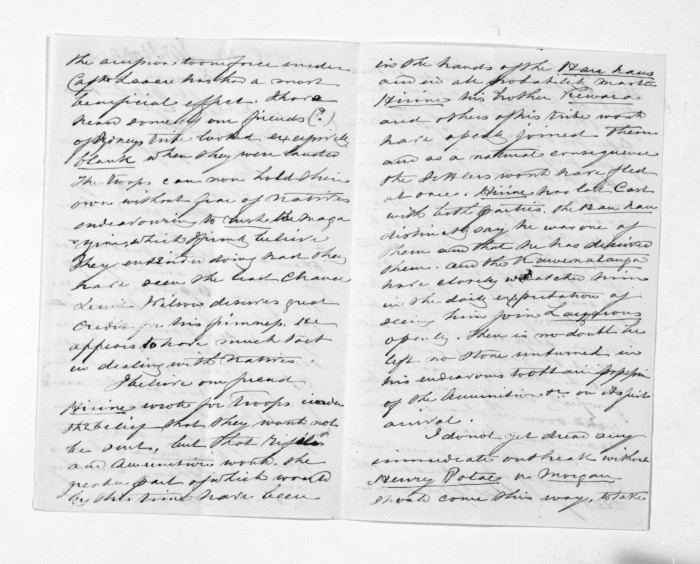 the arrival of a force under
Capt. has had a most
beneficial effect. I have
heard some of our friends (?)
of Hirini's tribe looked excessively
blank when they were landed
The troops can now hold their
own without fear of Natives
endeavouring to the maga
zine, which I firmly believe
they intended doing had they
have seen the least chance
Lieut Wilson deserves great
Credit for his firmness. He
appears to have much tact
in dealing with Natives.
I believe our friend
Hirini wrote for Troops under
the belief that they would not
be sent, but that Rifles
and Ammunition would. the
greater part of which would
by this time have been
in the hands of the Hau haus
and in all probability
Hirini his brother
and others of his tribe would
have openly joined them
and as a natural consequence
the Settlers would have fled
at once. Hirini has lost Cast
with both parties. the Hau hau
distinctly say he was one of
them and that he has deceived
them. and the
have closely watched him
in the daily expectation of
seeing him join
openly. There is no doubt he
left no stone unturned in
his endeavours to obtain possession
of the Ammunition &c on its first
arrival.
I do not yet dread any
immediate outbreak without
Henry Potae or Morgan
should come this way, to take